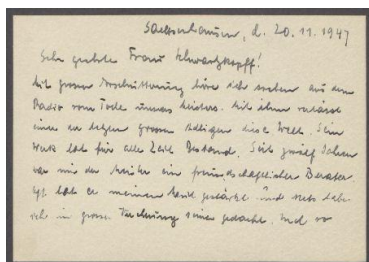 Sachsenhausen, d. 20.11.1947
Sehr geehrte Frau Schwarzkopff!
Mit grosser Erschütterung höre ich soeben aus dem
Radio vom Tode unseres Meisters. Mit ihm verlässt
einer der letzten grossen Adligen diese Welt. Sein
Werk hat für alle Zeit Bestand. Seit zwölf Jahren
war mir der Meister ein freundschaftlicher Berater.
Oft hat er meinen Geist gestärkt. Und stets habe
ich in grosser Verehrung seiner gedacht. Und so